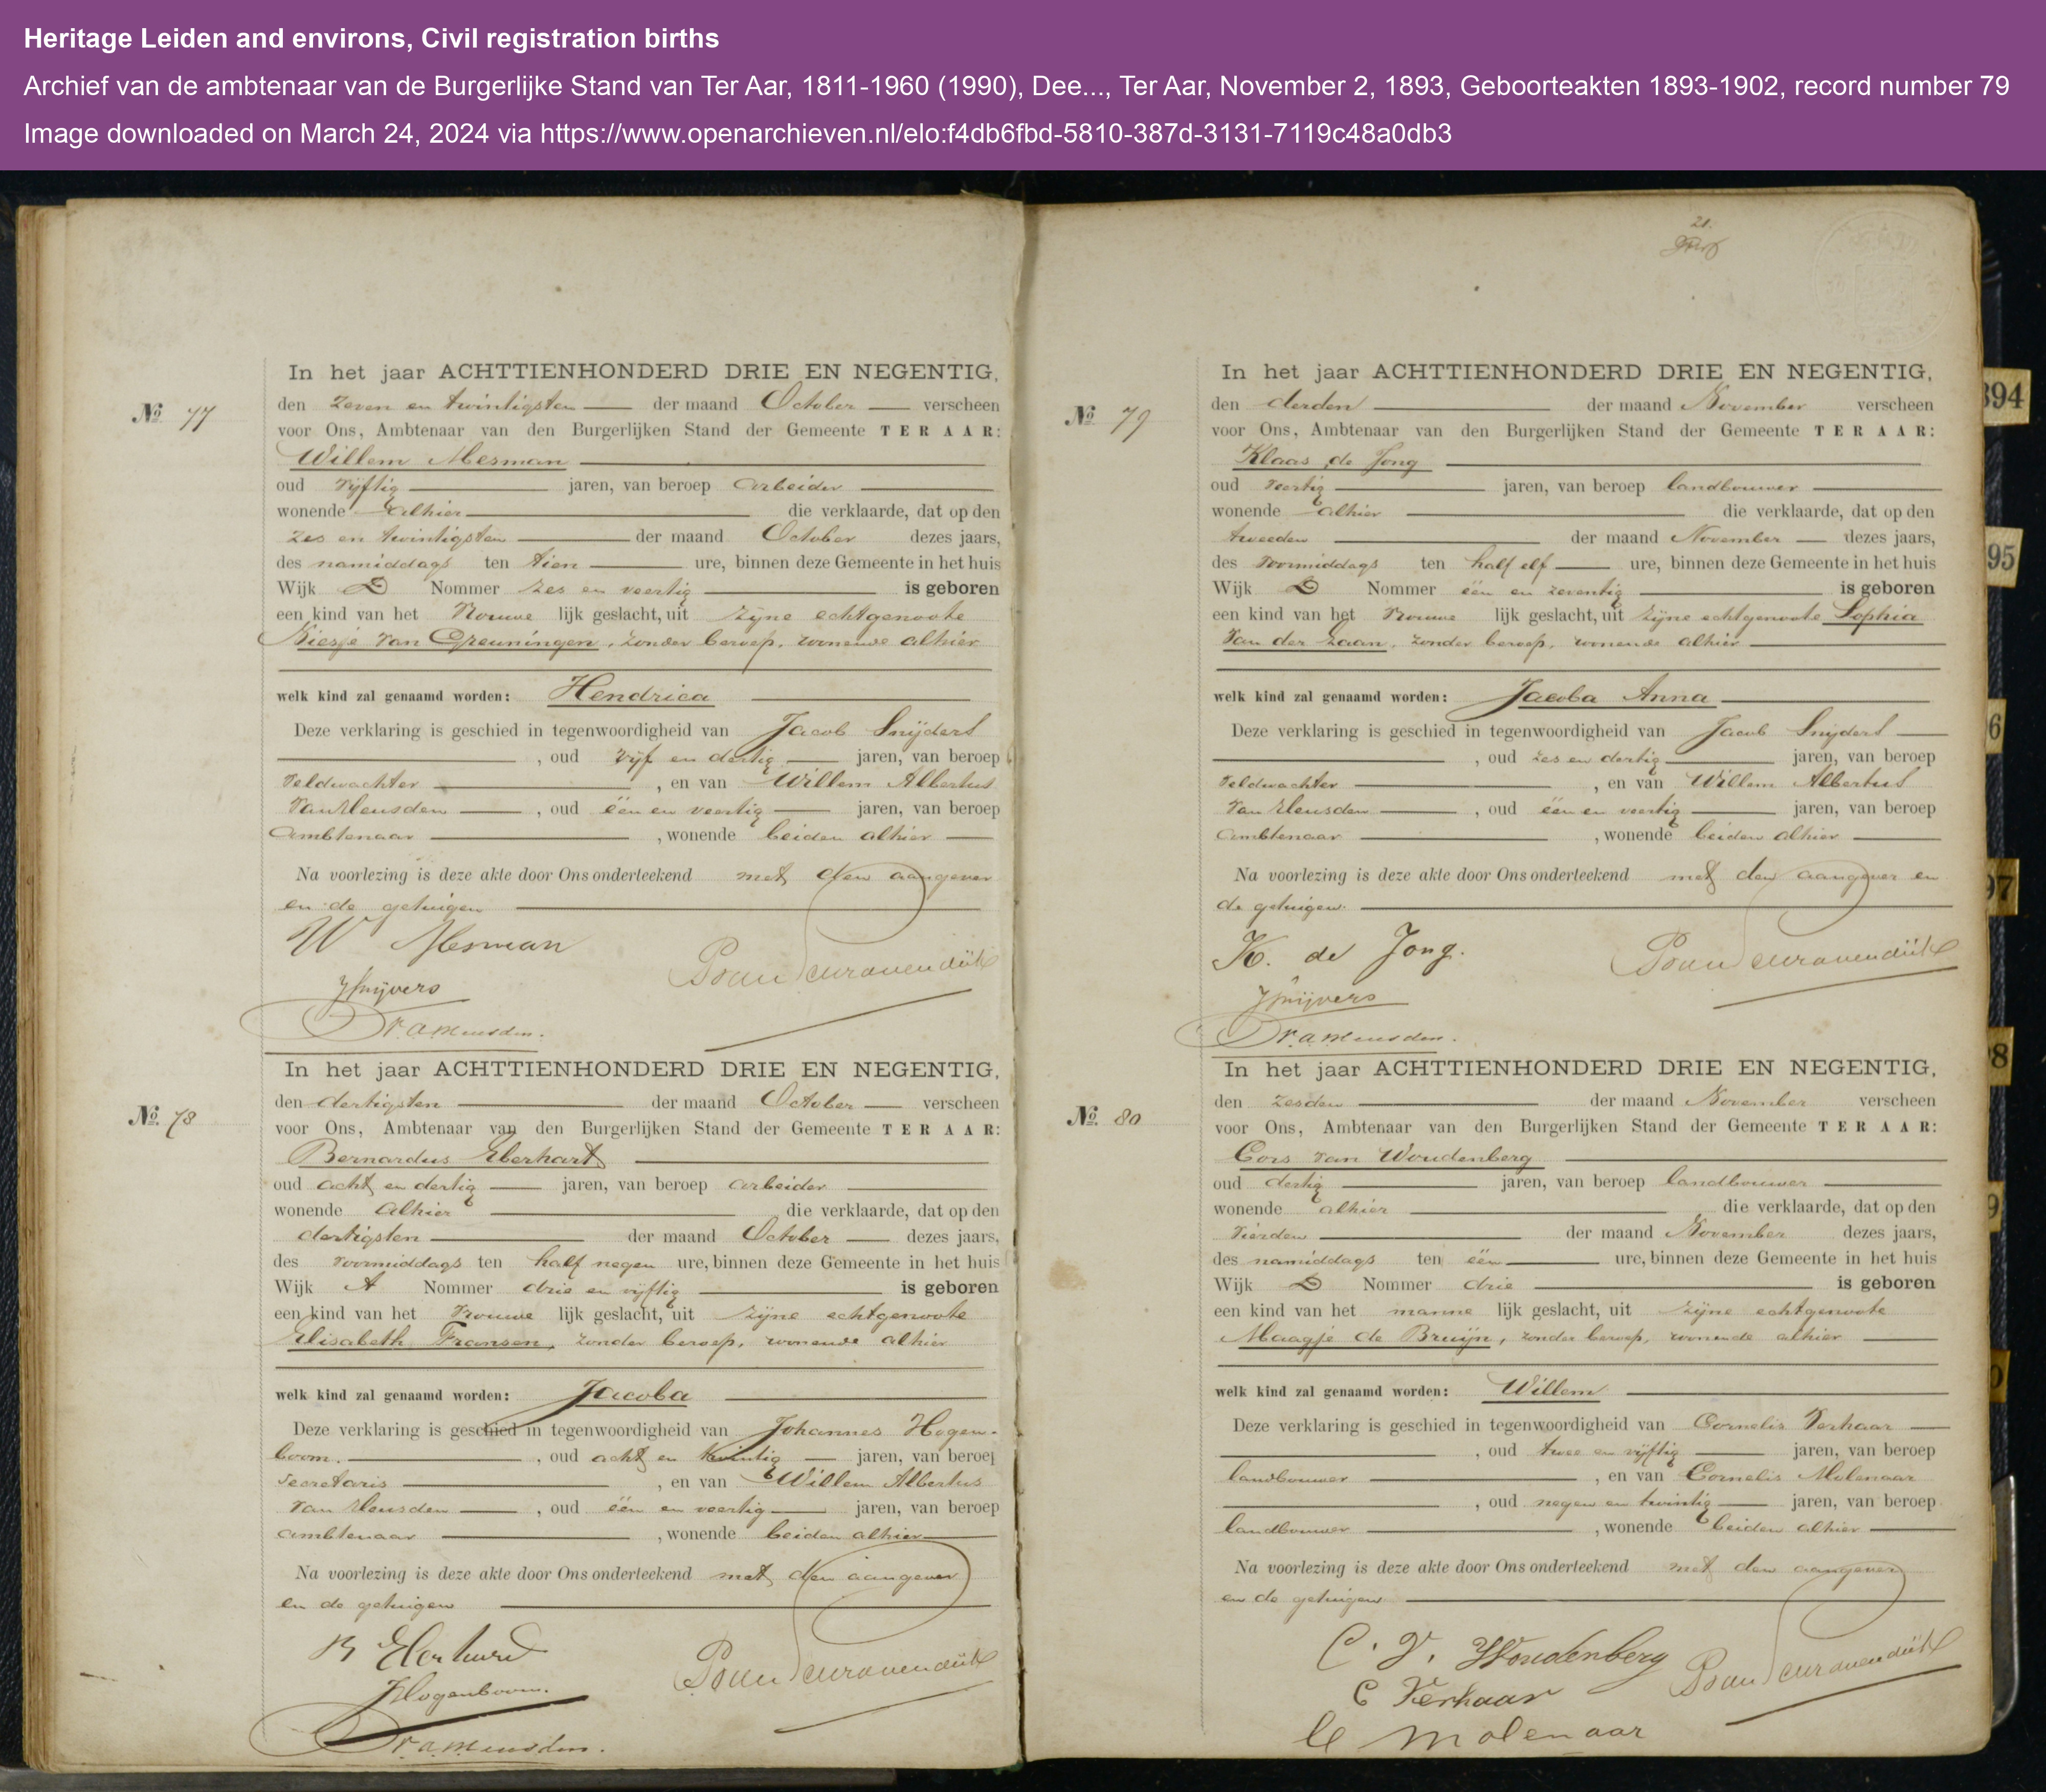 Heritage Leiden and environs, Civil registration births
Archief van de ambtenaar van de Burgerlijke Stand van Ter Aar, 1811-1960 (1990), Dee..., Ter Aar, November 2, 1893, Geboorteakten 1893-1902, record number 79
Image downloaded on March 24, 2024 via https://www.openarchieven.nl/elo:f4db6fbd-5810-387d-3131-7119c48a0db3
No 77
In het jaar ACHTTIENHONDERD DRIE EN NEGENTIG,
den zeven en twintigsten der maand October verscheen
voor Ons, Ambtenaar van den Burgerlijken Stand der Gemeente TER AAR:
Willem Mesman
oud vijftig jaren, van beroep arbeider
wonende alhier die verklaarde, dat op den
zes en twintigsten der maand October dezes jaars,
des namiddags ten tien ure, binnen deze Gemeente in het huis
Wijk D Nommer zes en veertig is geboren
een kind van het vrouwe lijk geslacht, uit zijne echtgenoote
van Greuningen, zonder beroep, wonende alhier
welk kind zal genaamd worden: Hendrica
Deze verklaring is geschied in tegenwoordigheid van Jacob Snijders
, oud vijf en dertig jaren, van beroep
veldwachter , en van Willem Albertus
van Meusden , oud één en veertig jaren, van beroep
ambtenaar , wonende beiden alhier
Na voorlezing is deze akte door Ons onderteekend met den aangever
en de getuigen
W Mesman
No 78
In het jaar ACHTTIENHONDERD DRIE EN NEGENTIG,
den dertigsten der maand October verscheen
voor Ons, Ambtenaar van den Burgerlijken Stand der Gemeente TER AAR:
Bernardus Eberhart
oud acht en dertig jaren, van beroep arbeider
wonende alhier die verklaarde, dat op den
dertigsten der maand October dezes jaars,
des voormiddags ten half negen ure, binnen deze Gemeente in het huis
Wijk A Nommer drie en vijftig is geboren
een kind van het vrouwe lijk geslacht, uit zijne echtgenoote
Elisabeth Fransen, zonder beroep, wonende alhier
welk kind zal genaamd worden: Jacoba
Deze verklaring is geschied in tegenwoordigheid van Johannes Hogen-
boom. , oud acht en twintig jaren, van beroep
secretaris , en van Willem Albertus
van Meusden , oud één en veertig jaren, van beroep
ambtenaar , wonende beiden alhier
Na voorlezing is deze akte door Ons onderteekend met den aangever
en de getuigen
JHogenboom.
21.
No 79
In het jaar ACHTTIENHONDERD DRIE EN NEGENTIG,
den derden der maand November verscheen
voor Ons, Ambtenaar van den Burgerlijken Stand der Gemeente TER AAR:
Klaas de Jong
oud veertig jaren, van beroep landbouwer
wonende alhier die verklaarde, dat op den
tweeden der maand November dezes jaars,
des voormiddags ten half elf ure, binnen deze Gemeente in het huis
Wijk D Nommer één en zeventig is geboren
een kind van het vrouwe lijk geslacht, uit zijne echtgenoote Sophia
van der Laan, zonder beroep, wonende alhier
welk kind zal genaamd worden: Jacoba Anna
Deze verklaring is geschied in tegenwoordigheid van Jacob Snijders
, oud zes en dertig jaren, van beroep
veldwachter , en van Willem Albertus
van Meusden , oud één en veertig jaren, van beroep
ambtenaar , wonende beiden alhier
Na voorlezing is deze akte door Ons onderteekend met den aangever en
de getuigen.
K. de Jong.
No 80
In het jaar ACHTTIENHONDERD DRIE EN NEGENTIG,
den zesden der maand November verscheen
voor Ons, Ambtenaar van den Burgerlijken Stand der Gemeente TER AAR:
Cors van Woudenberg
oud dertig jaren, van beroep landbouwer
wonende alhier die verklaarde, dat op den
vierden der maand November dezes jaars,
des namiddags ten één ure, binnen deze Gemeente in het huis
Wijk D Nommer drie is geboren
een kind van het manne lijk geslacht, uit zijne echtgenoote
Maagje de Bruijn, zonder beroep, wonende alhier
welk kind zal genaamd worden: Willem
Deze verklaring is geschied in tegenwoordigheid van Cornelis Verhaar
, oud twee en vijftig jaren, van beroep
landbouwer , en van Cornelis Molenaar
, oud negen en twintig jaren, van beroep
landbouwer , wonende beiden alhier
Na voorlezing is deze akte door Ons onderteekend met den aangever
en de getuigen
C. V. Woudenberg
C Verhaar
C Molenaar
894
95
6
97
8
9
0